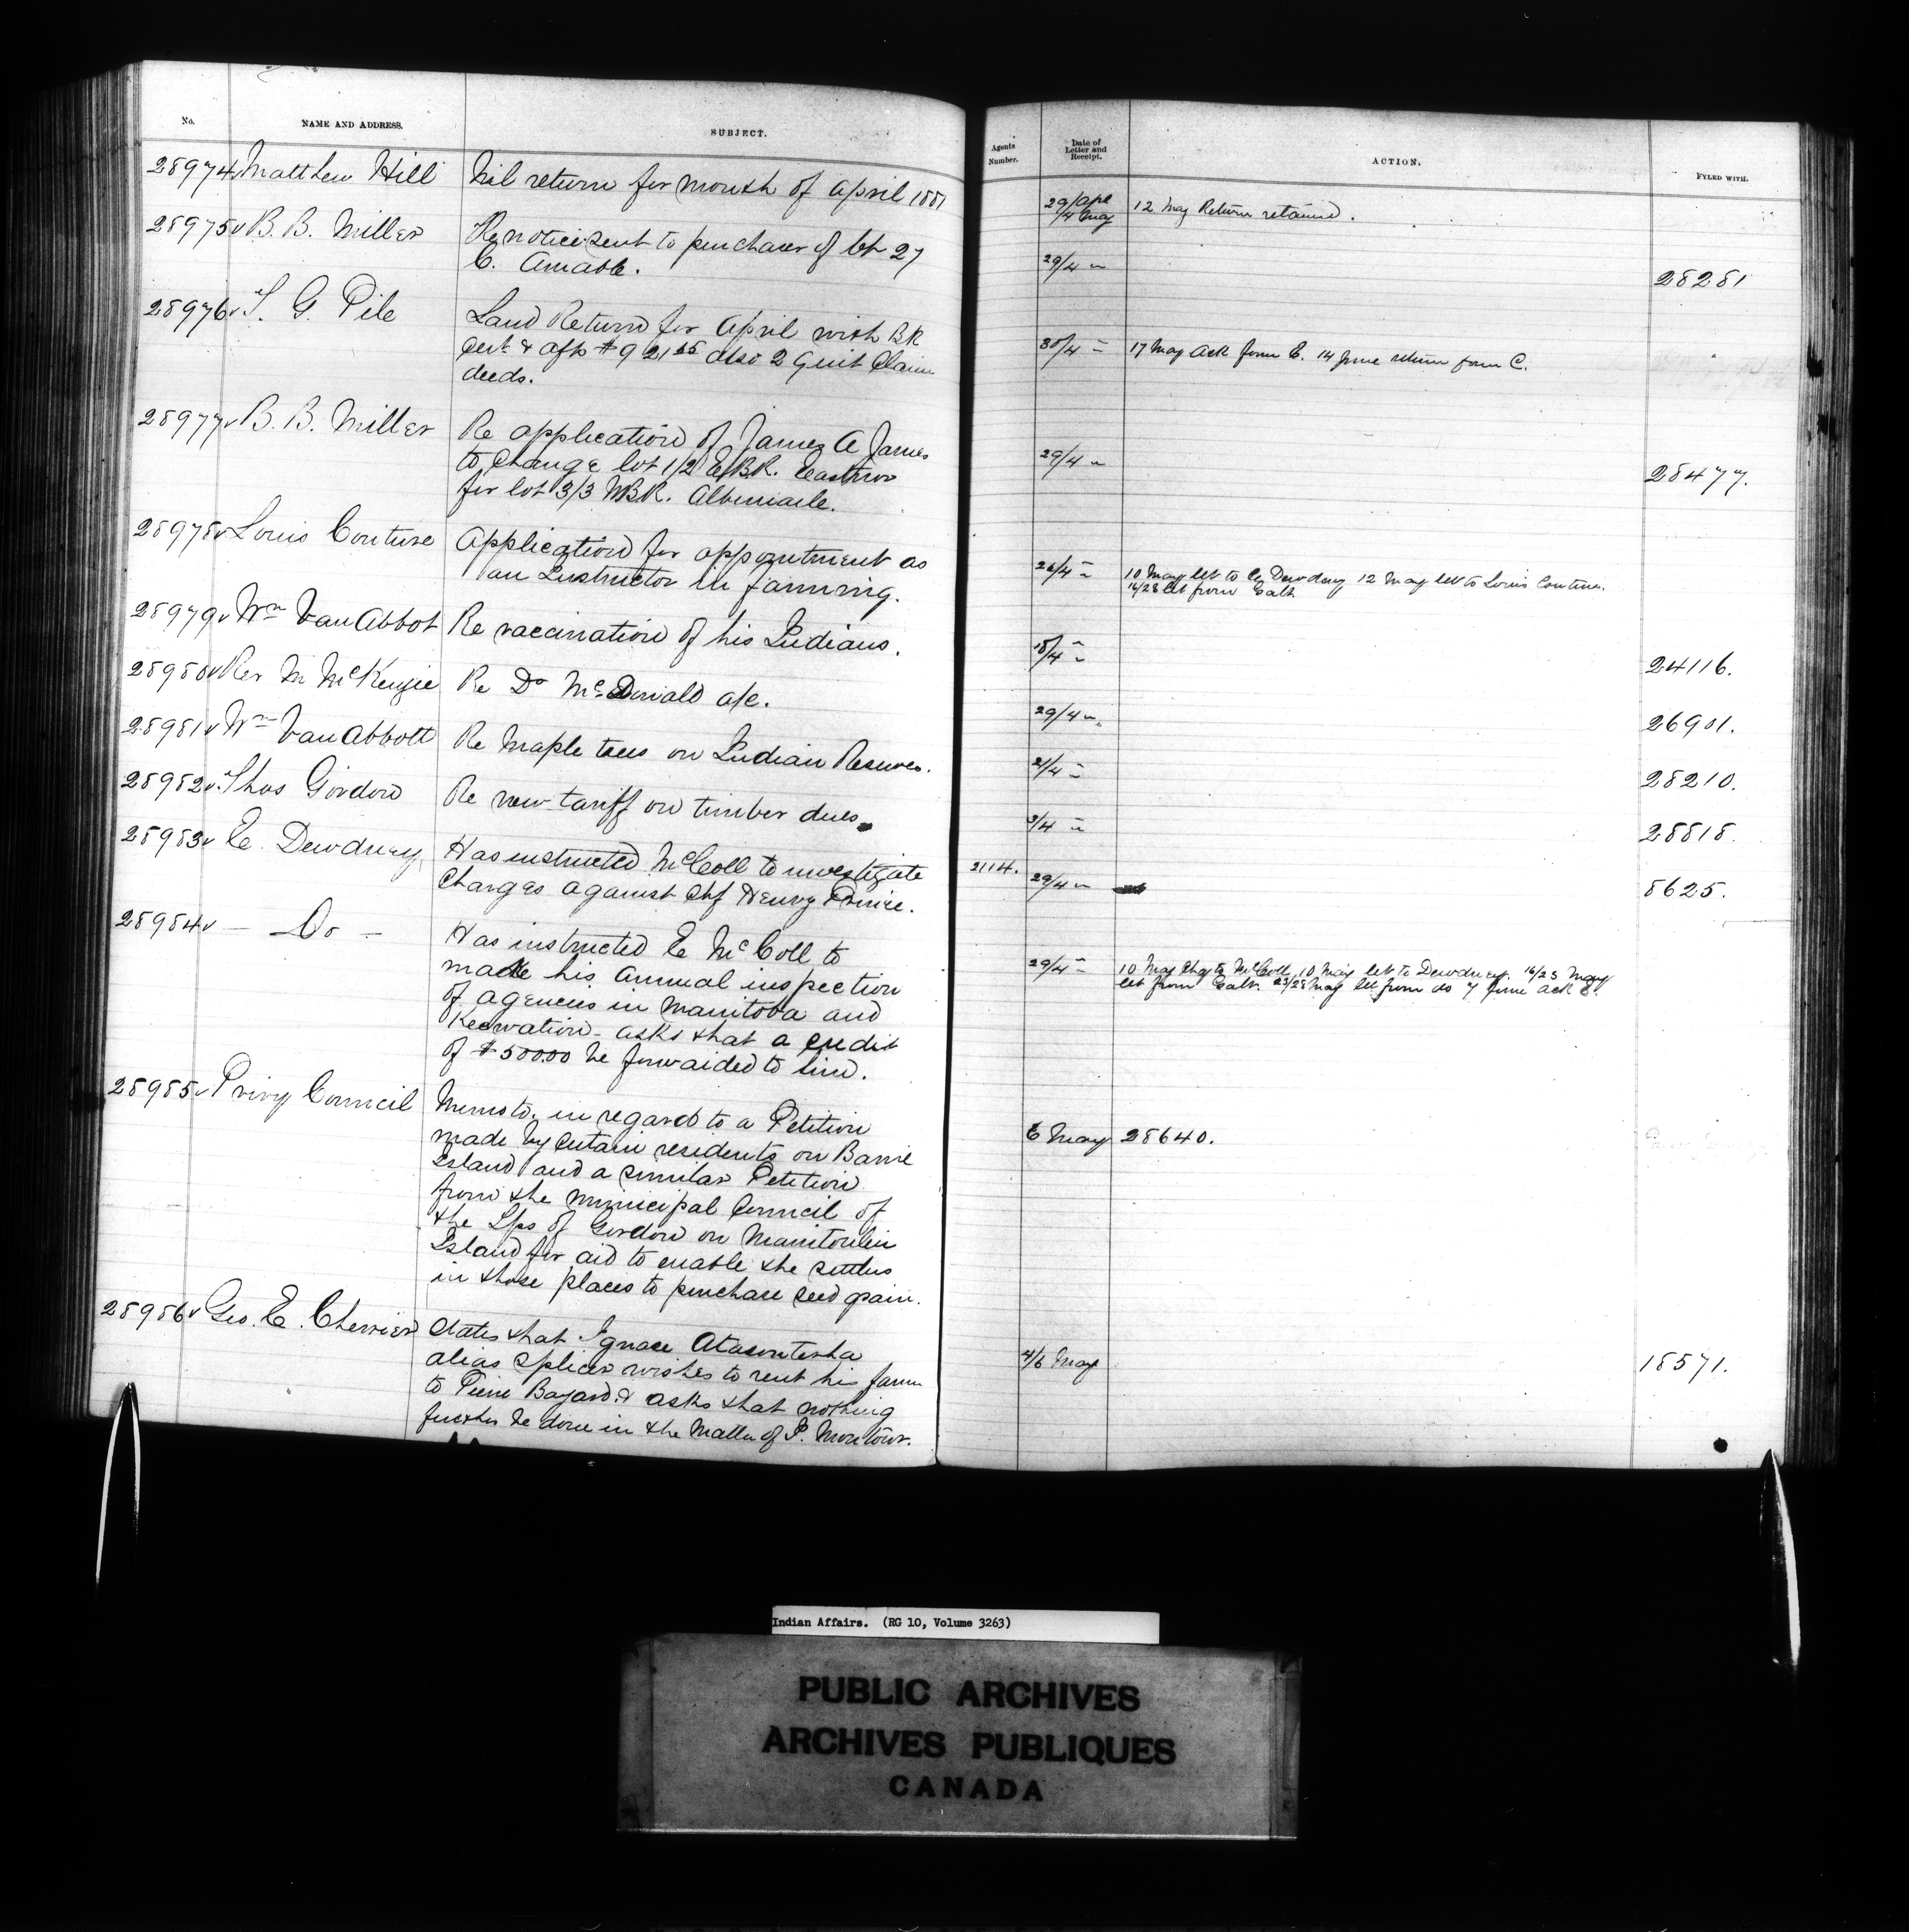 No. NAME AND ADDRESS. SUBJECT. Agents Number. Date of Letter and Receipt. ACTION. FYLED WITH.
28974 Matthew Hill Nil return for month of April 1881 29/Apl 4 May 12 May Return retained.
28975 B. B. Miller Re notice sent to purchaser of lot 27 29/4 " 28281
C. Amable.
28976 T. G. Pile Land Return for April with Bk 30/4 " 17 May Ack form E. 14 June return form C.
Cert & affts $921 also 2 Quit Claim
deeds.
28977 B. B. Miller Re application of James A James 29/4 " 28477.
to change lot 1/2 E.B.R. Eastnor
for lot 3/3 W.B.R. Albemarle.
28978 Louis Couture Application for appointment as 26/4 " 10 May let to E. Dewdney 12 May let to Louis Couture.
an Instructor in farming. 16/28 let from Galt
28979 Wm Van Abbot Re vaccination of his Indians. 18/4 " 24116.
28980 Rev M McKenzie Re Dr McDonald a/c. 29/4 " 26901.
28981 Wm Van Abbott Re Maple trees on Indian Reserves. 21/4 " 28210.
28982 Thos Gordon Re new tariff on timber dues. 3/4 " 28818.
28983 E. Dewdney Has instructed McColl to investigate 2114. 29/4 " 8625.
Charges against Chf Henry Prince.
28984 — Do — Has instructed E McColl to 29/4 " 10 May Chq to McColl, 10 May let to Dewdney. 16/23 May
make his annual inspection let from Galt. 23/28 May let from do 7 June ack E.
of agencies in Manitoba and
Keewation - asks that a credit
of $500.00 be forwarded to him.
28985 Privy Council Memo to. in regard to a Petition 6 May 28640.
made by certain residents on Barrie
Island and a similar Petition
from the Municipal Council of
the Tps of Gordon on Manitoulin
Island for aid to enable the settlers
in those places to purchase seed grain.
28986 Geo. E. Cherrier States that Ignace 4/6 May 18571.
alias Splicer wishes to rent his farm
to Pierre Bayard & asks that nothing
further be done in the Matter of P. Montour.
Indian Affairs. (RG 10, Volume 3263)
PUBLIC ARCHIVES
ARCHIVES PUBLIQUES
CANADA